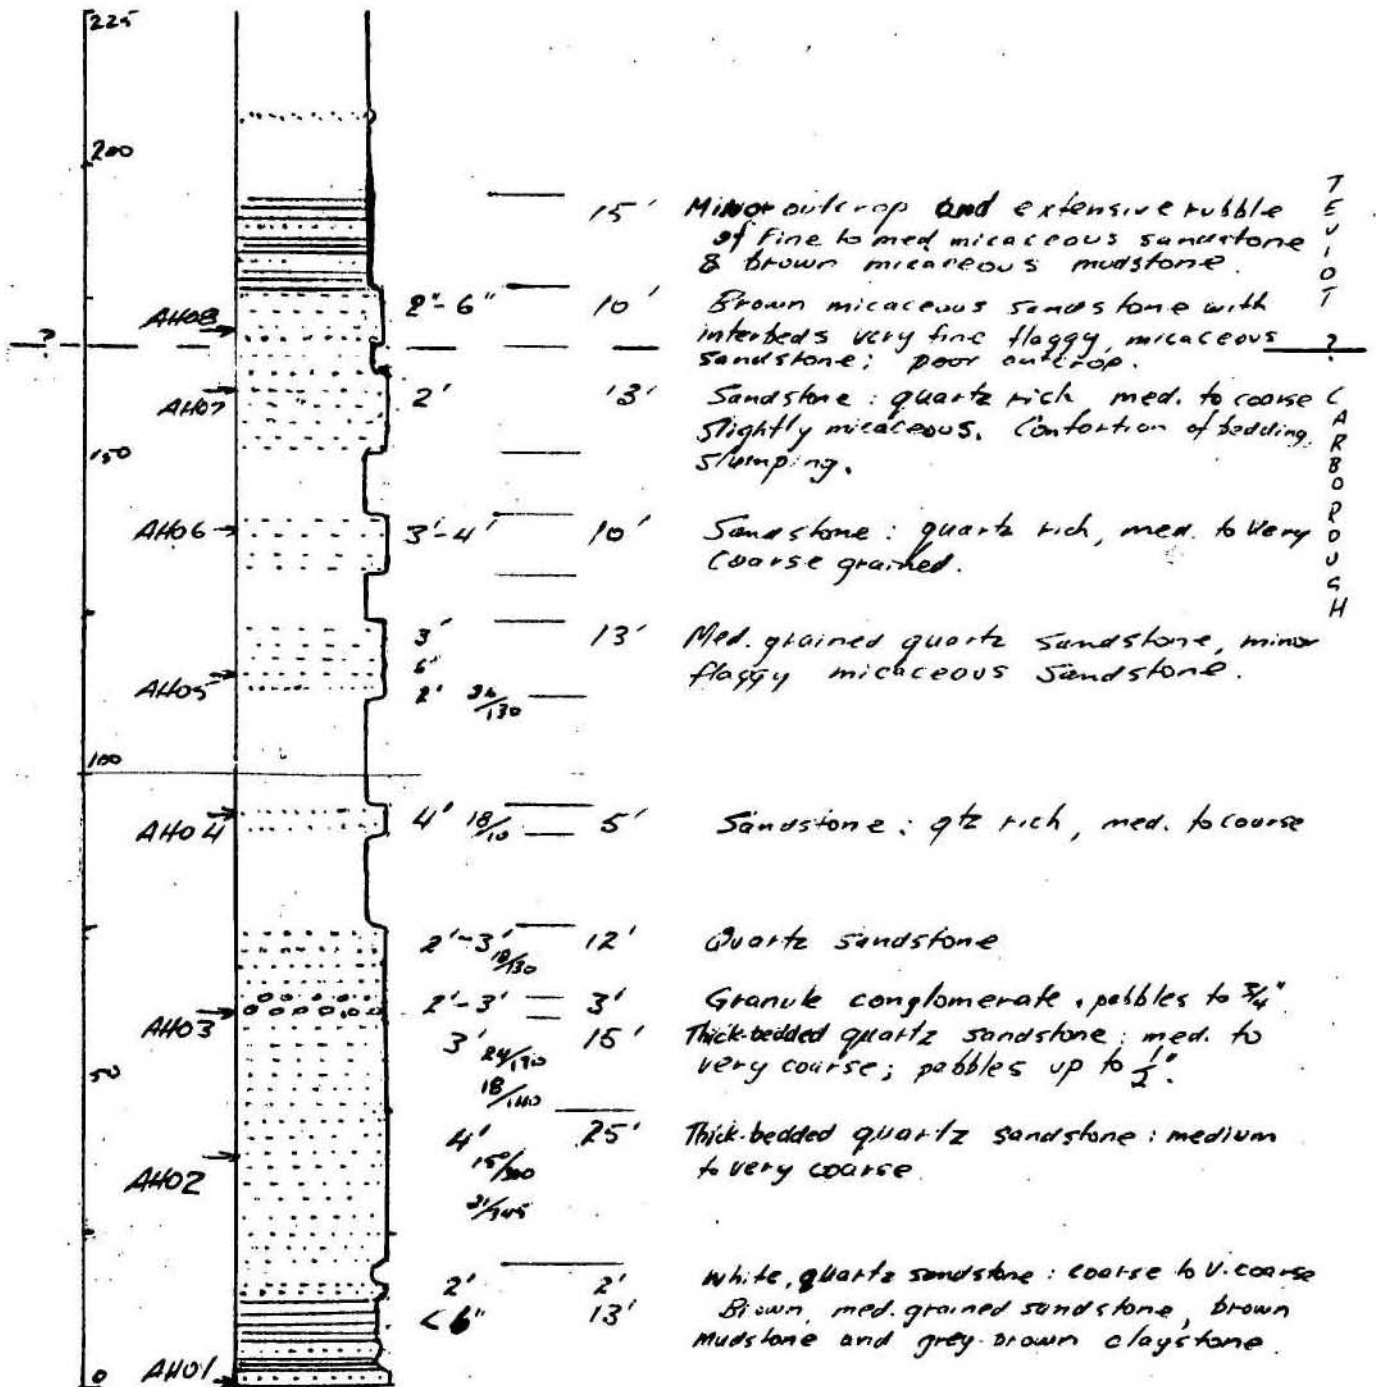 225
200
15' Minor outcrop and extensive rubble
of fine to med micaceous sandstone
& brown micaceous mudstone.
AH08 2"-6" 10' Brown micaceous sandstone with
interbeds very fine flaggy, micaceous
sandstone; poor outcrop.
?
TEVIOT
?
CARBOROUGH
AH07 2' 13' Sandstone: quartz rich med. to coarse
slightly micaceous. Contortion of bedding,
slumping.
150
AH06 3'-4' 10' Sandstone: quartz rich, med. to very
coarse grained.
3' 13' Med. grained quartz sandstone, minor
flaggy micaceous sandstone.
AH05 2'
100
AH04 4' 18/10 5' Sandstone: qtz rich, med. to course
2'-3' 12' Quartz sandstone
AH03 2'-3' 3' Granule conglomerate, pebbles to 3/4"
3' 15' Thick-bedded quartz sandstone: med. to
very course; pebbles up to 1/2".
50
18/140
4' 25' Thick-bedded quartz sandstone: medium
to very coarse.
AH02
2' 2' White, quartz sandstone: coarse to v. coarse
<6" 13' Brown, med. grained sandstone, brown
mudstone and grey-brown claystone.
0 AH01